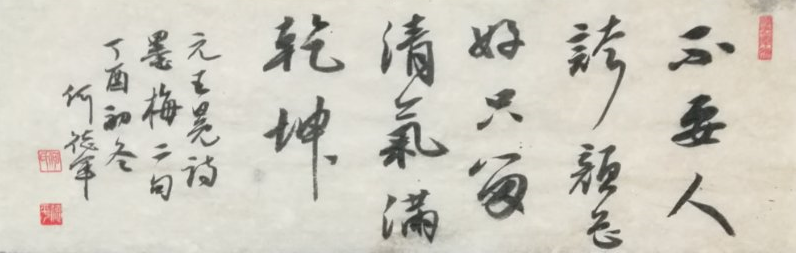 不要人
誇顔色
好只留
清氣滿
乾坤
元王冕詩
墨梅二句
丁酉初冬
何德軍